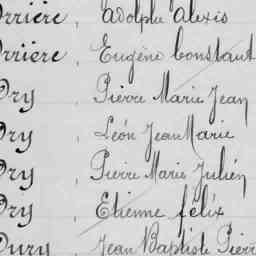 orrière, Adolphe Alexis
orrière, Eugène Constant
Ory, Pierre Marie Jean
Ory, Léon Jean Marie
Ory, Pierre Marie Julien
Ory, Etienne félix
Oury, Jean Baptiste Pierr